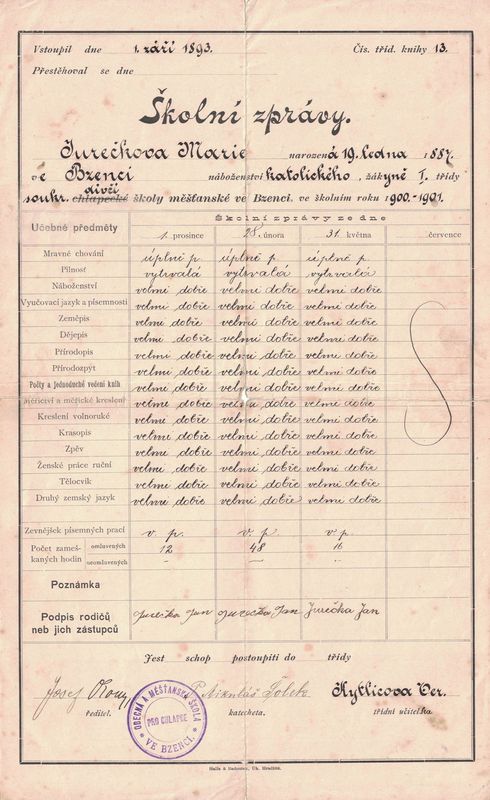 Vstoupil dne 1. září 1893. Čís. tříd. knihy 13.
Přestěhoval se dne
Školní zprávy.
Jurečkova Marie narozená 19. ledna 1887.
ve Bzenci náboženství katolického, žákyně I. třídy
soukr. chlapecké dívčí školy měšťanské ve Bzenci. ve školním roku 1900.-1901.
Učebné předměty Školní zprávy ze dne
1. prosince 28. února 31. května července
Mravné chování úplně p. úplně p. úplně p.
Pilnosť vytrvalá vytrvalá vytrvalá
Náboženství velmi dobře velmi dobře velmi dobře
Vyučovací jazyk a písemnosti velmi dobře velmi dobře velmi dobře
Zeměpis velmi dobře velmi dobře velmi dobře
Dějepis velmi dobře velmi dobře velmi dobře
Přírodopis velmi dobře velmi dobře velmi dobře
Přírodozpyt velmi dobře velmi dobře velmi dobře
Počty a jednoduché vedení knih velmi dobře velmi dobře velmi dobře
Měřictví a měřické kreslení velmi dobře velmi dobře velmi dobře
Kreslení volnoruké velmi dobře velmi dobře velmi dobře
Krasopis velmi dobře velmi dobře velmi dobře
Zpěv velmi dobře velmi dobře velmi dobře
Ženské práce ruční velmi dobře velmi dobře velmi dobře
Tělocvik velmi dobře velmi dobře velmi dobře
Druhý zemský jazyk velmi dobře velmi dobře velmi dobře
Zevnějšek písemných prací v. p. v. p. v p.
Počet zameškaných hodin omluvených 12 48 16
neomluvených – – –
Poznámka
Podpis rodičů neb jich zástupců Jurečka Jan Jurečka Jan Jurečka Jan
Jest schop postoupiti do třídy
Josef P. Mikuláš Kytlicova Ver.
ředitel. katecheta. třídní učitelka
OBECNÁ A MĚŠŤANSKÁ ŠKOLA PRO CHLAPCE VE BZENCI.